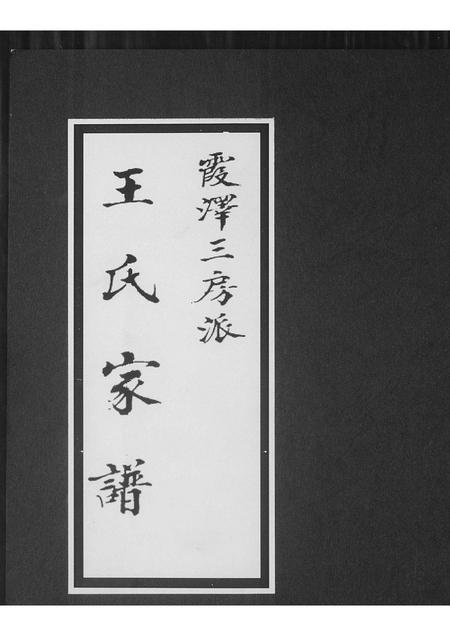 霞澤三房派
王氏家譜